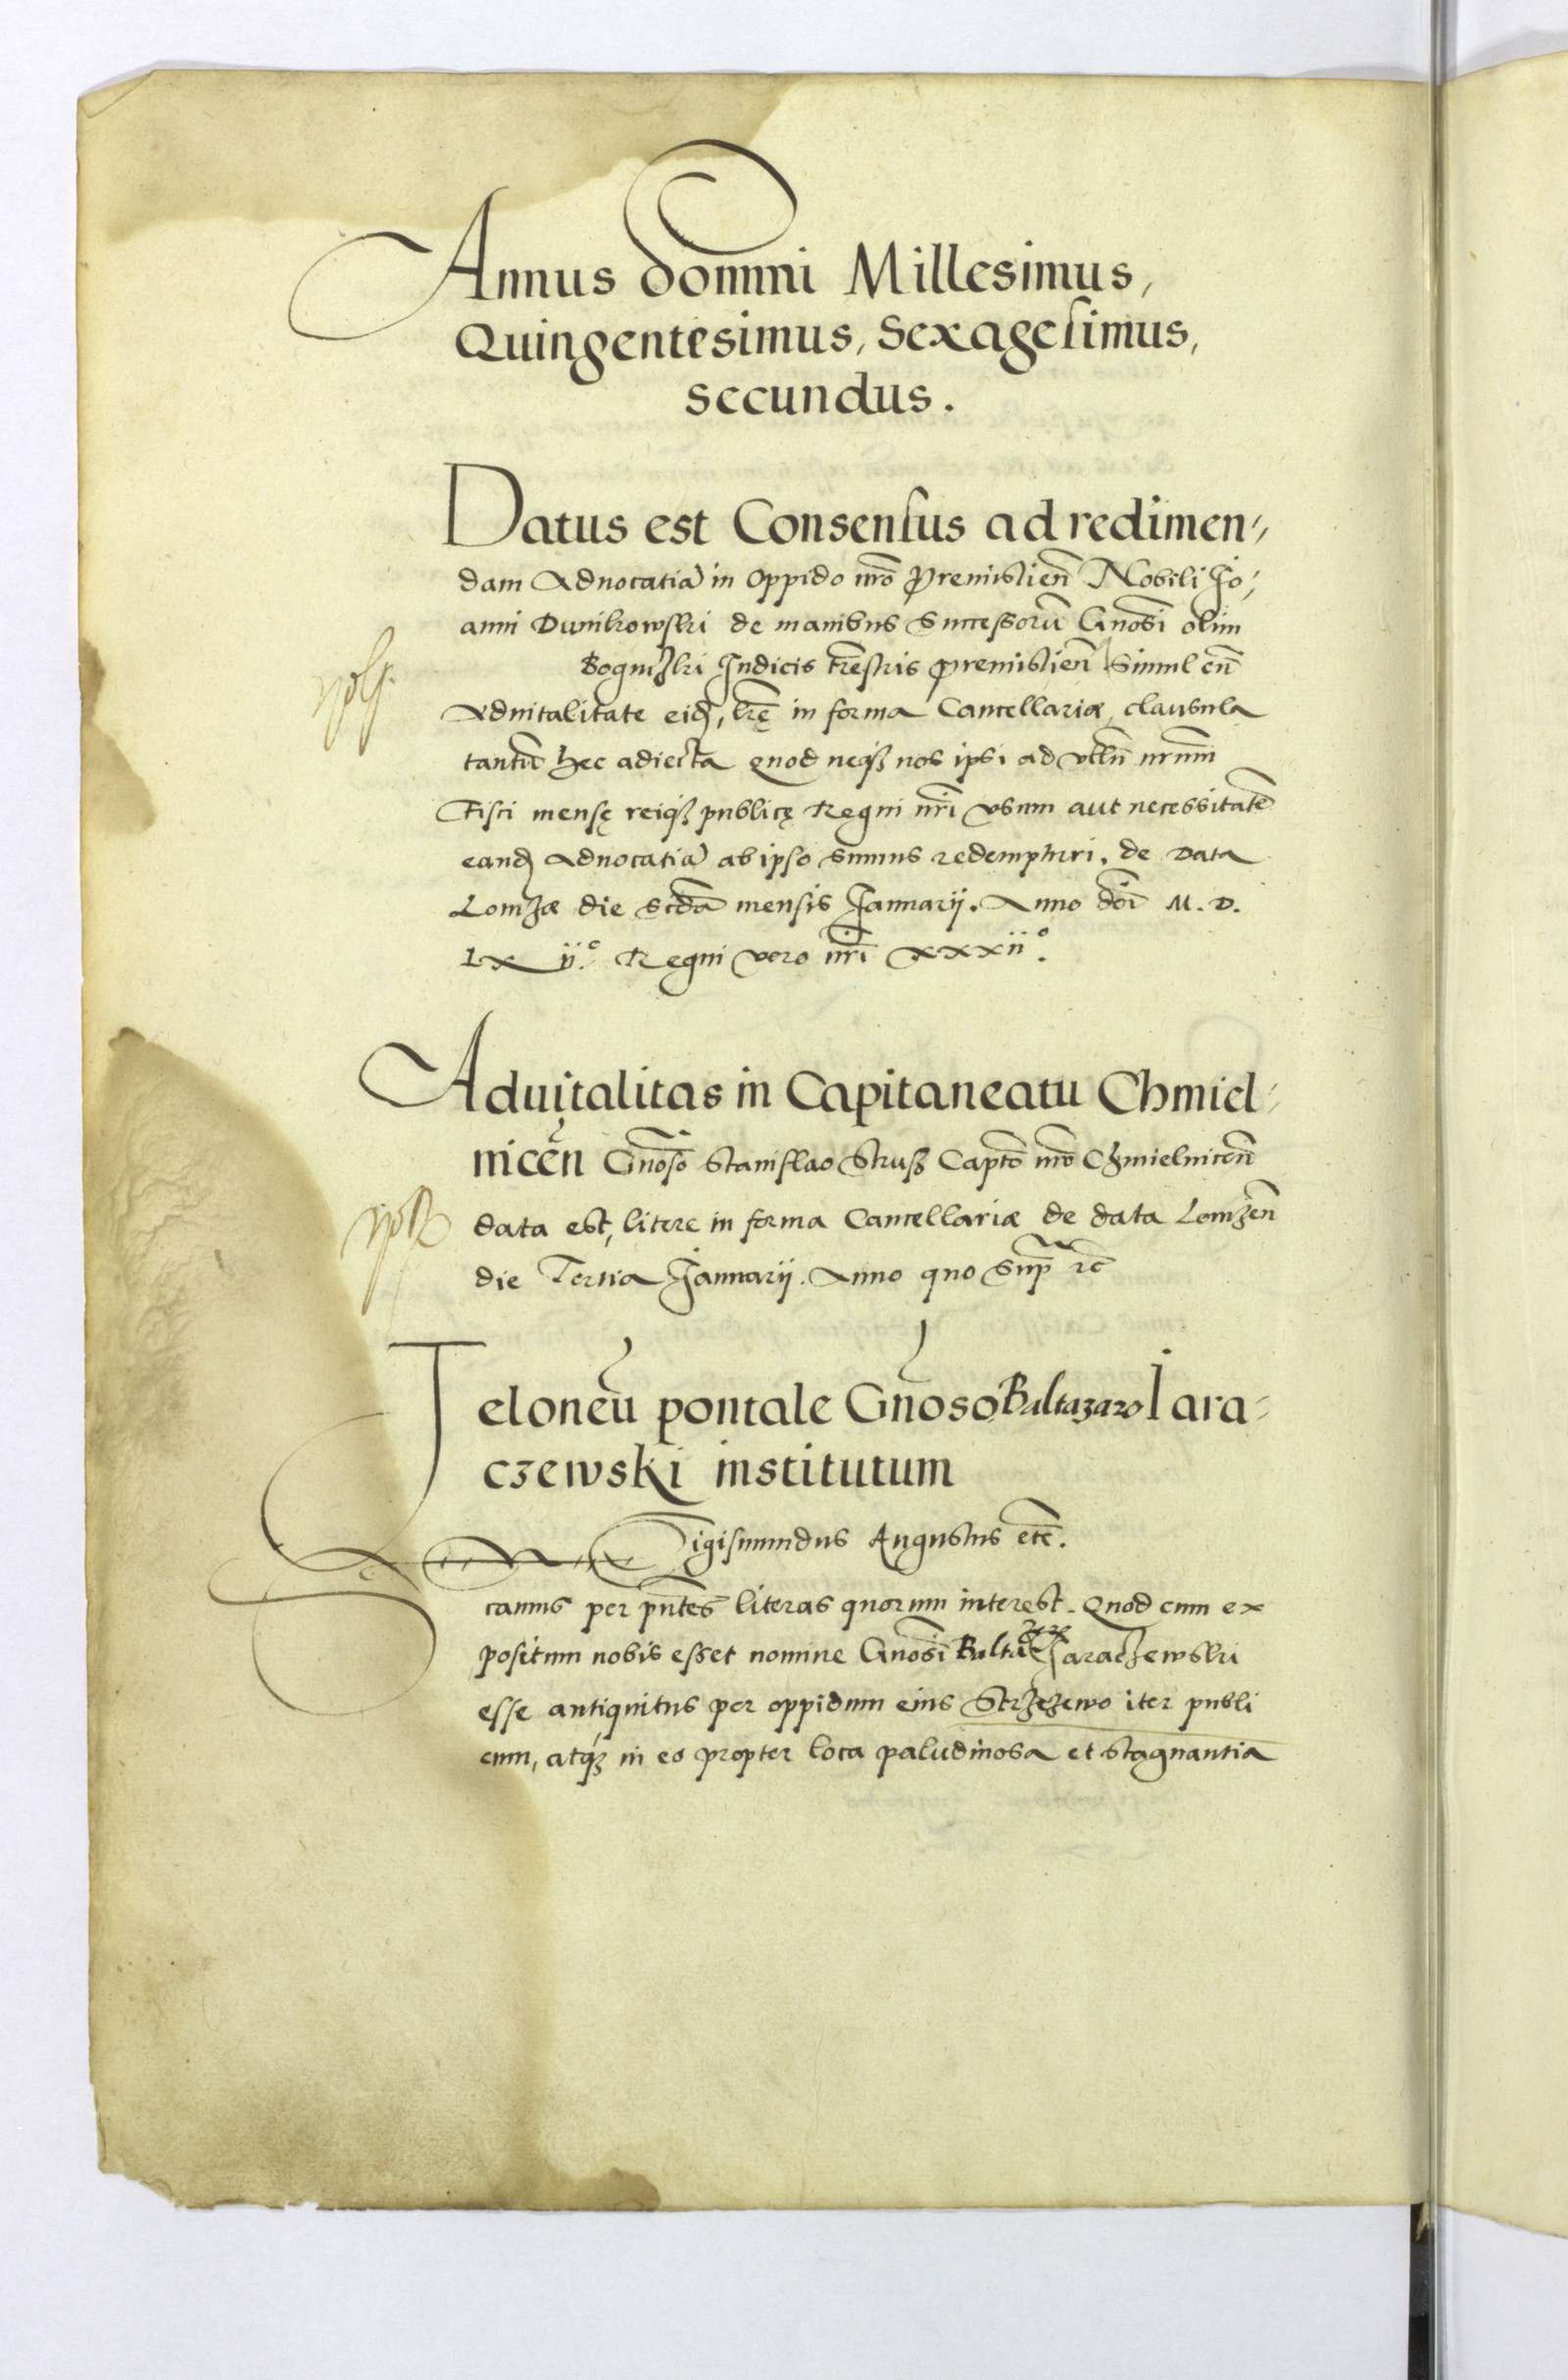 Annus domini Millesimus,
Quingentesimus, Sexagesimus,
secundus.
Datus est Consensus ad redimen,,
dam Aduocatiā in Oppido nr̃o Premislien̄ Nobili Jo,
anni Dunikowski de manibus Successorū Gn̄osi olim
Boguszki Judicis tr̃estris premislien̄ Simul cū
Aduitalitate eid, lrę in forma Cancellariæ, clausula
tantū hec adiecta quod neqȝ nos ipsi ad vtlū nrūm
Fisci mensę reiqȝ publicę Regni nrī vsum aut necessitatē
eand Aduocatiā ab ipso sumus redempturi. de Data
Lomzæ die scdā mensis Januarij. Anno doī M. D.
Lx ij.° Regni vero nrī xxxii°.
Aduitalitas in Capitaneatu Chmiel-
nicen̄ Gn̄oso Stanislao Strusz Captō nrō Chmielnicen̄
data est, litere in forma Cancellariæ de data Lomzen̄
die Tertia Januarij. Anno quo Sup̄ rc̄
Teloneū pontale Gn̄oso Baltazaro Jara-
czewski institutum
Sigismundus Augustus etc̄.
camus per pn̄tes literas quorum interest. Quod cum ex
positum nobis esset nomine Gn̄osi Baltazar Jaraczewski
esse antiquitus per oppidum eius Strzezewo iter publi
cum, atqȝ in eo propter loca paludinosa et stagnantia